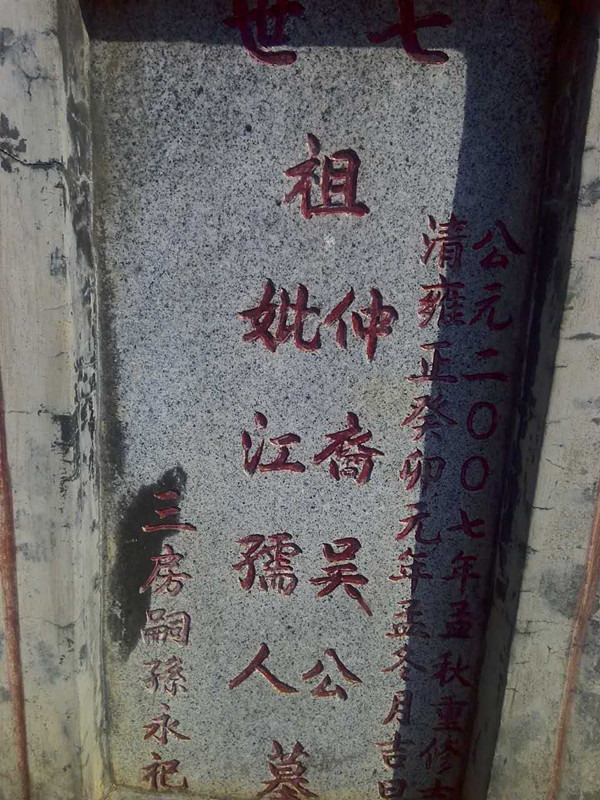 七世
公元二〇〇七年孟秋重修
清雍正癸卯元年孟冬月吉日
祖
仲裔吴公
妣江孺人
墓
三房嗣孫永祀